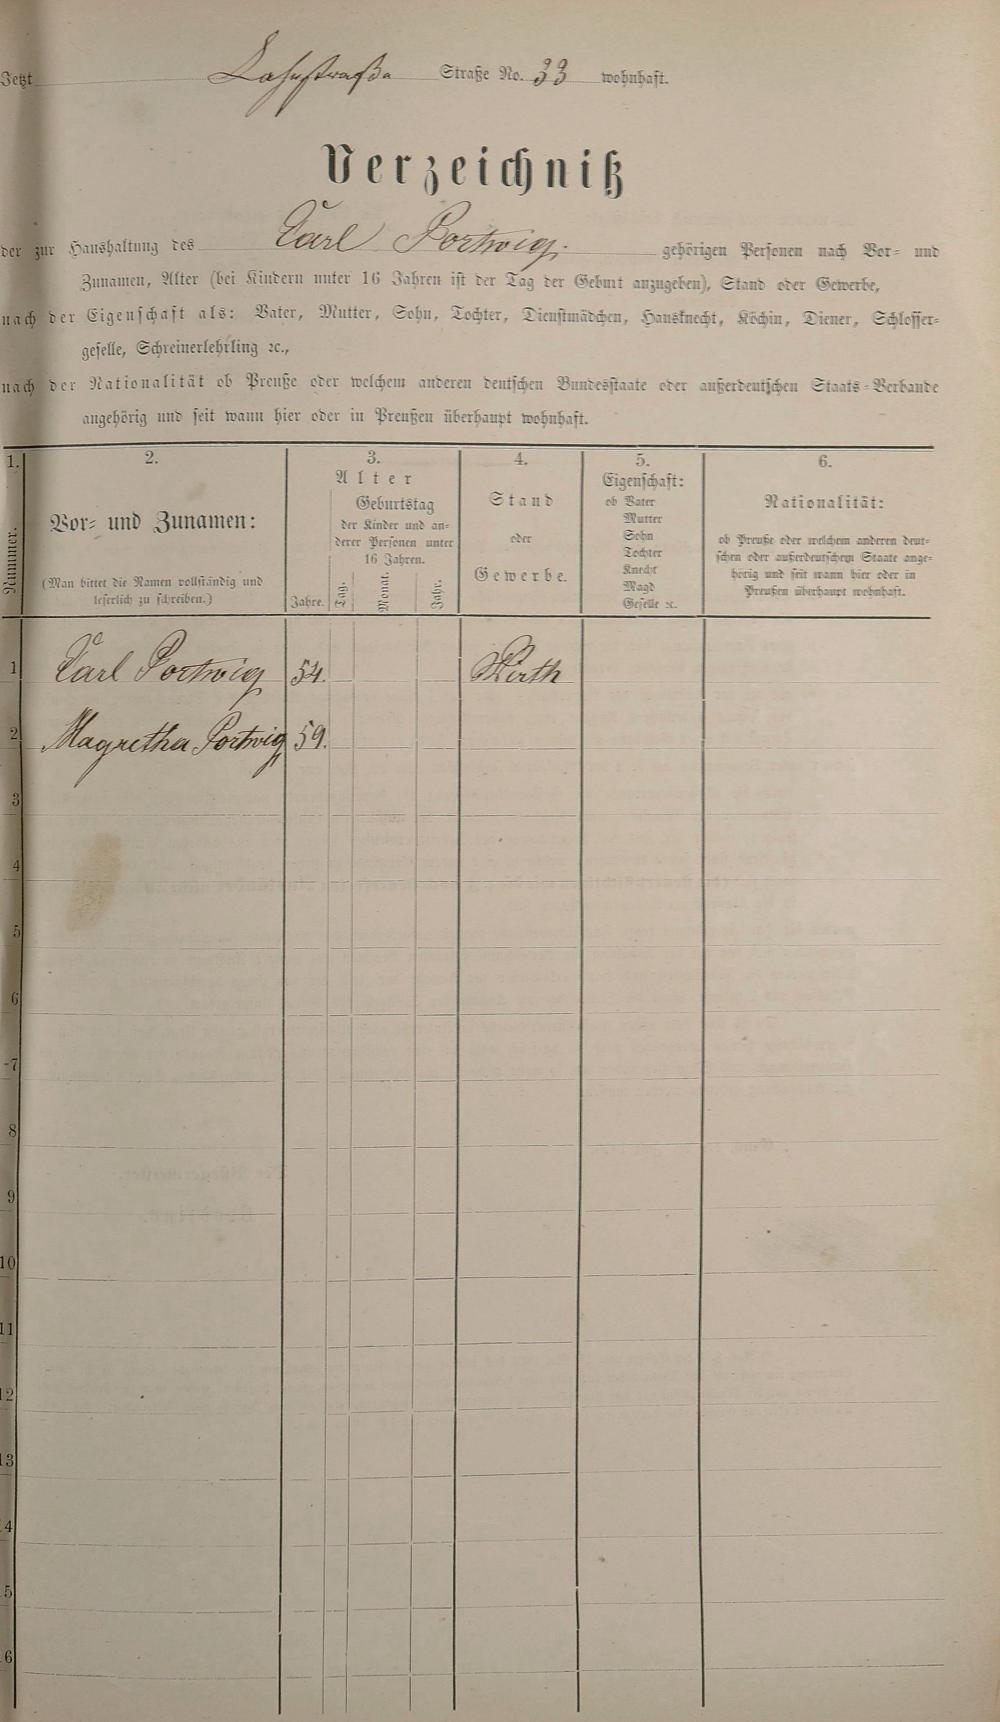 Jetzt Lahnstraße Straße No. 33 wohnhaft.
Verzeichniß
der zur Haushaltung des Carl Portwig. gehörigen Personen nach Vor- und
Zunamen, Alter (bei Kindern unter 16 Jahren ist der Tag der Geburt anzugeben), Stand oder Gewerbe,
nach der Eigenschaft als: Vater, Mutter, Sohn, Tochter, Dienstmädchen, Hausknecht, Köchin, Diener, Schlosser-
geselle, Schreinerlehrling ꝛc.,
nach der Nationalität ob Preuße oder welchem anderen deutschen Bundesstaate oder außerdeutschen Staats-Verbande
angehörig und seit wann hier oder in Preußen überhaupt wohnhaft.
1.
Nummer.
2.
Vor- und Zunamen:
(Man bittet die Namen vollständig und
leserlich zu schreiben.)
3.
Alter
Geburtstag
der Kinder und an-
derer Personen unter
16 Jahren.
Jahre. Tag. Monat. Jahr.
4.
Stand
oder
Gewerbe.
5.
Eigenschaft:
ob Vater
Mutter
Sohn
Tochter
Knecht
Magd
Geselle ꝛc.
6.
Nationalität:
ob Preuße oder welchem anderen deut-
schen oder außerdeutschem Staate ange-
hörig und seit wann hier oder in
Preußen überhaupt wohnhaft.
1 Carl Portwig 54. Wirth
2 Magretha Portwig 59.
3
4
5
6
7
8
9
10
11
12
13
4
5
6